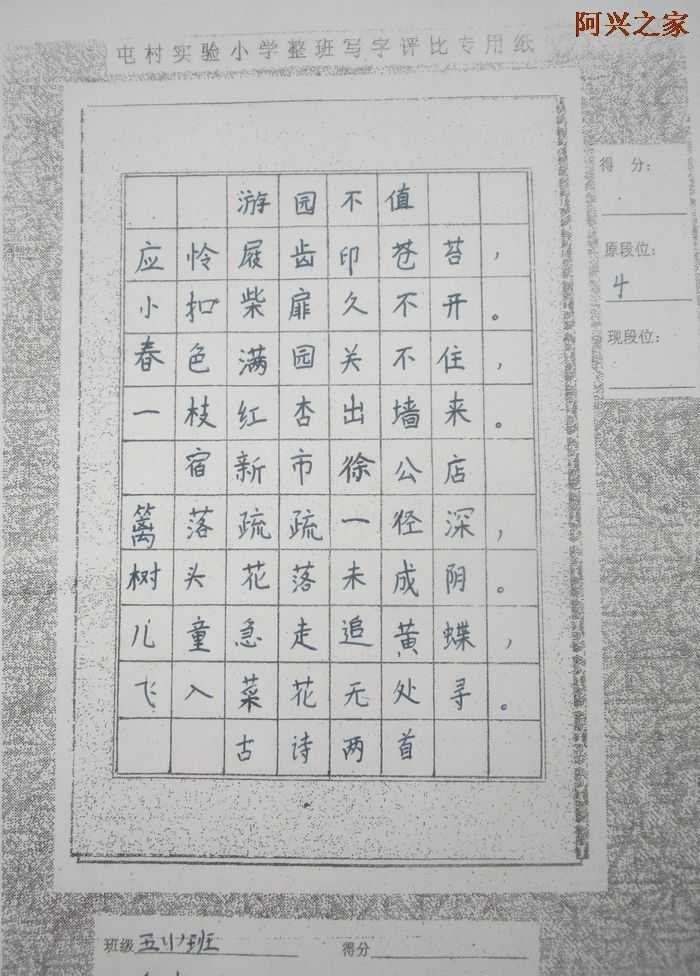 阿兴之家
屯村实验小学整班写字评比专用纸
得 分:
原段位:
4
现段位:
游园不值
应怜屐齿印苍苔,
小扣柴扉久不开。
春色满园关不住,
一枝红杏出墙来。
宿新市徐公店
篱落疏疏一径深,
树头花落未成阴。
儿童急走追黄蝶,
飞入菜花无处寻。
古诗两首
班级 得分